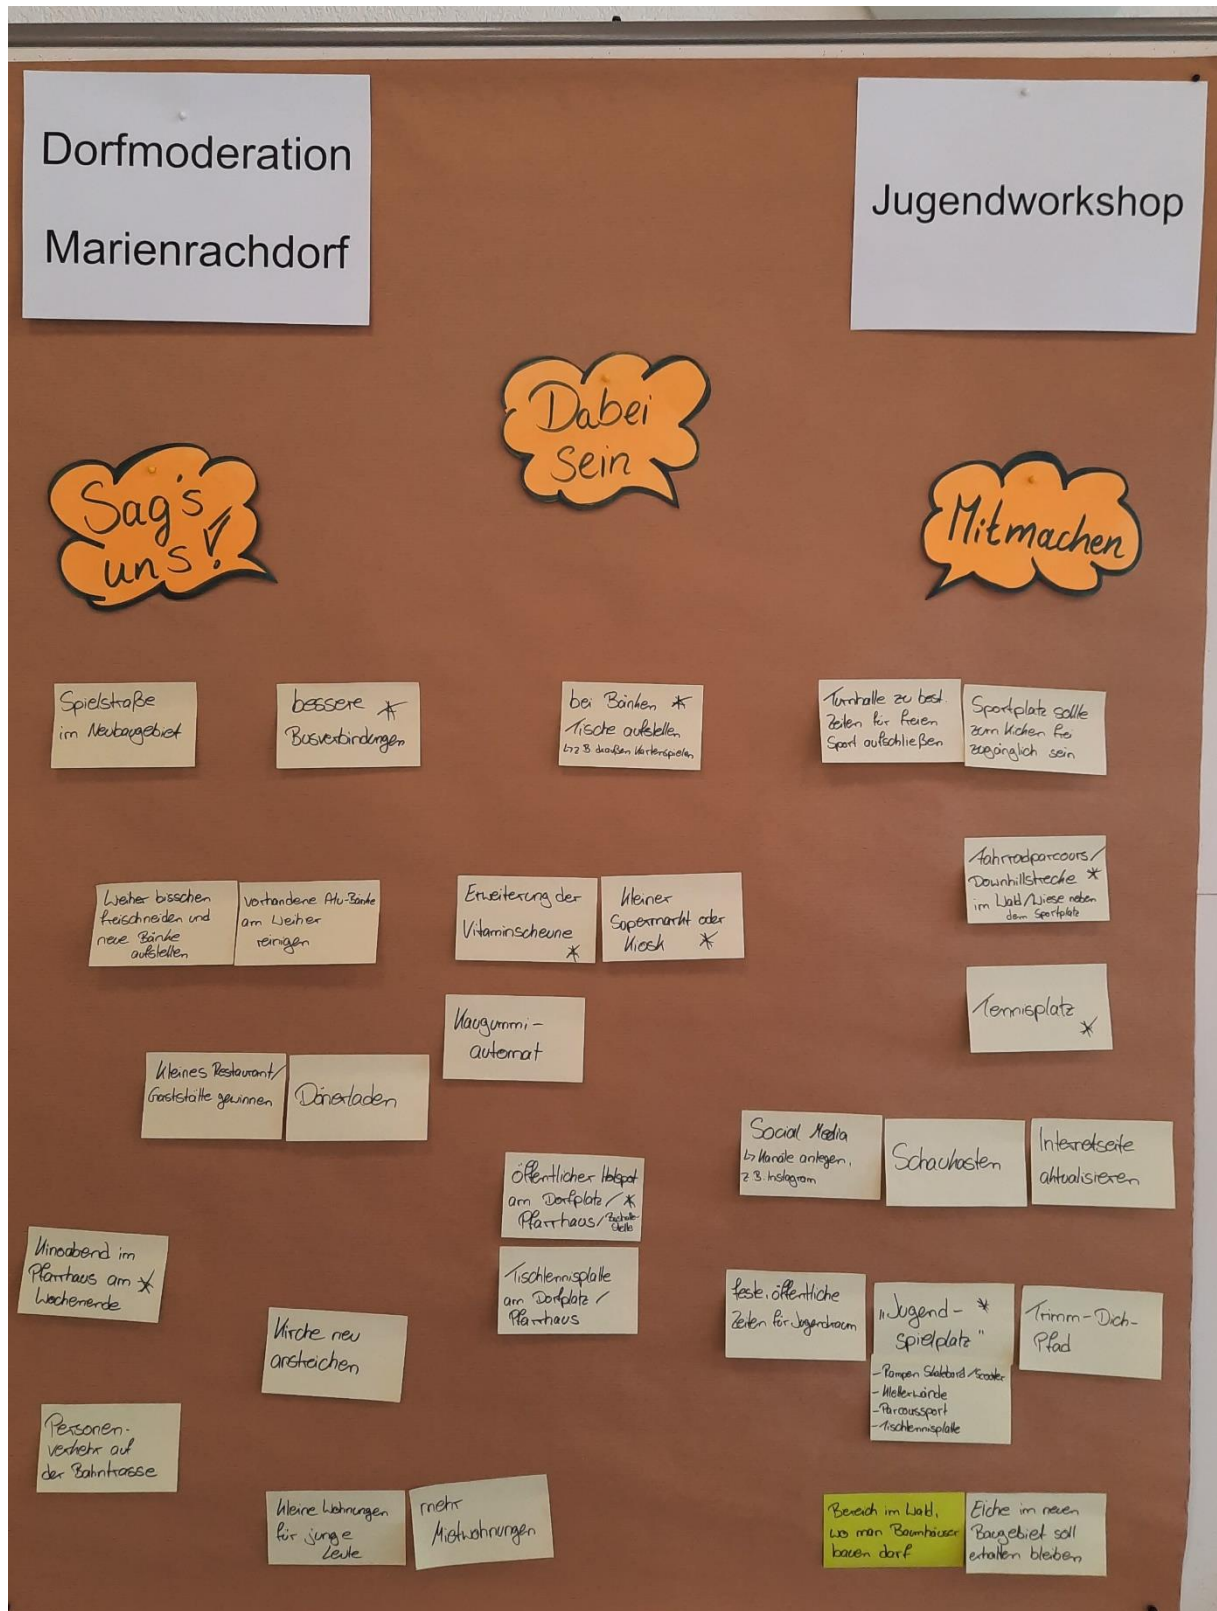 Dorfmoderation
Marienrachdorf
Jugendworkshop
Dabei
sein
Sag's
uns!
Mitmachen
Spielstraße
im Neubaugebiet
bessere *
Busverbindungen
bei Bänken *
Tische aufstellen
↳ z.B. draußen Kartenspielen
Turnhalle zu best.
Zeiten für freien
Sport aufschließen
Sportplatz sollte
zum Kicken frei
zugänglich sein
Weiher bisschen
freischneiden und
neue Bänke
aufstellen
vorhandene Alu-Bänke
am Weiher
reinigen
Erweiterung der
Vitaminscheune
*
kleiner
Supermarkt oder
Kiosk *
Fahrradparcours/
Downhillstrecke *
im Wald/Wiese neben
dem Sportplatz
Tennisplatz
*
Kaugummi-
automat
kleines Restaurant/
Gaststätte gewinnen
Dönerladen
Social Media
↳ Kanäle anlegen,
z.B. Instagram
Schaukasten
Internetseite
aktualisieren
öffentlicher Hotspot
am Dorfplatz/ *
Pfarrhaus/
Tischtennisplatte
am Dorfplatz /
Pfarrhaus
Kinoabend im
Pfarrhaus am *
Wochenende
Kirche neu
anstreichen
feste, öffentliche
Zeiten für Jugendraum
„Jugend- *
spielplatz"
- Rampen Skateboard/Scooter
- Kletterwände
- Parcoussport
- Tischtennisplatte
Trimm-Dich-
Pfad
Personen-
verkehr auf
der Bahntrasse
kleine Wohnungen
für junge
Leute
mehr
Mietwohnungen
Bereich im Wald,
wo man Baumhäuser
bauen darf
Eiche im neuen
Baugebiet soll
erhalten bleiben